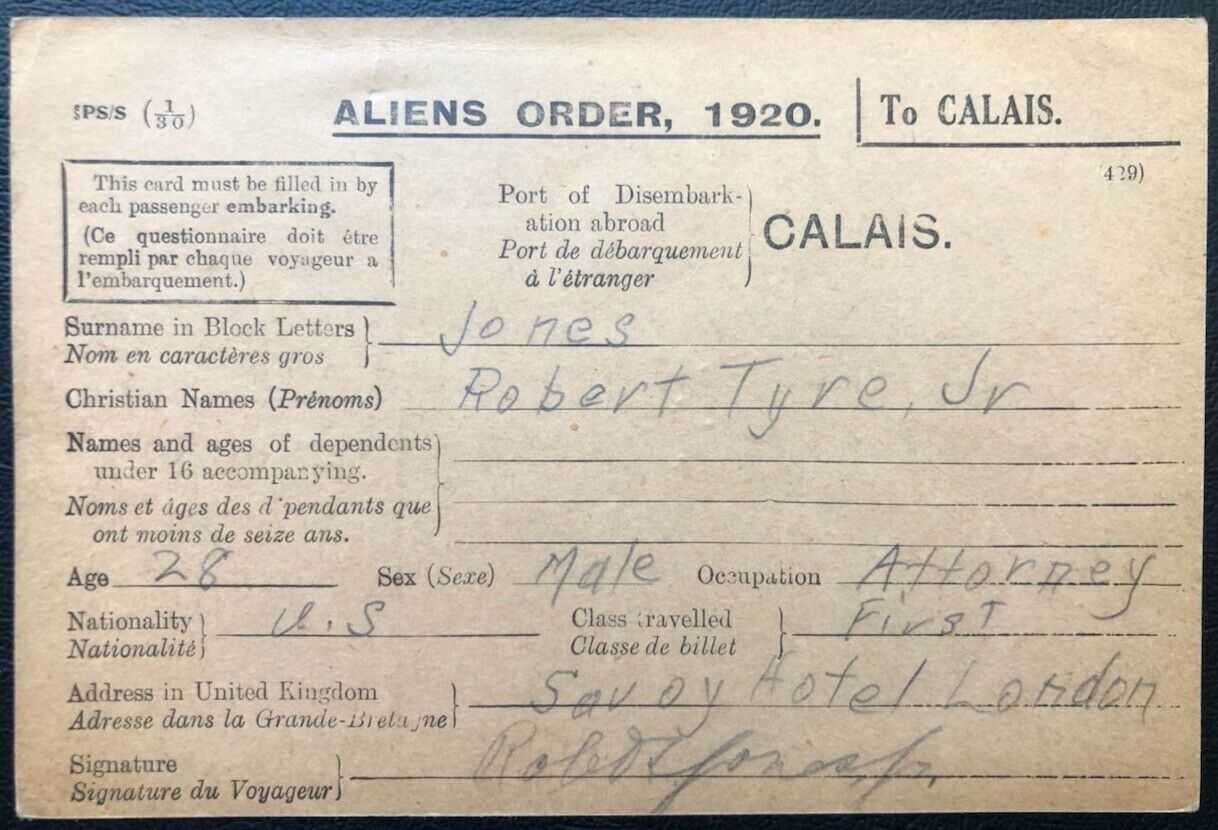 SPS/S (1/30)
ALIENS ORDER, 1920.
To CALAIS.
(429)
This card must be filled in by
each passenger embarking.
(Ce questionnaire doit être
rempli par chaque voyageur a
l'embarquement.)
Port of Disembark-
ation abroad
Port de débarquement
à l'étranger
CALAIS.
Surname in Block Letters
Nom en caractères gros
Jones
Christian Names (Prénoms) Robert Tyre, Jr
Names and ages of dependents
under 16 accompanying.
Noms et âges des d pendants que
ont moins de seize ans.
Age 28 Sex (Sexe) Male Occupation Attorney
Nationality
Nationalité
U.S
Class travelled
Classe de billet
First
Address in United Kingdom
Adresse dans la Grande-Bretagne
Savoy Hotel London
Signature
Signature du Voyageur
Robert T Jones, Jr.